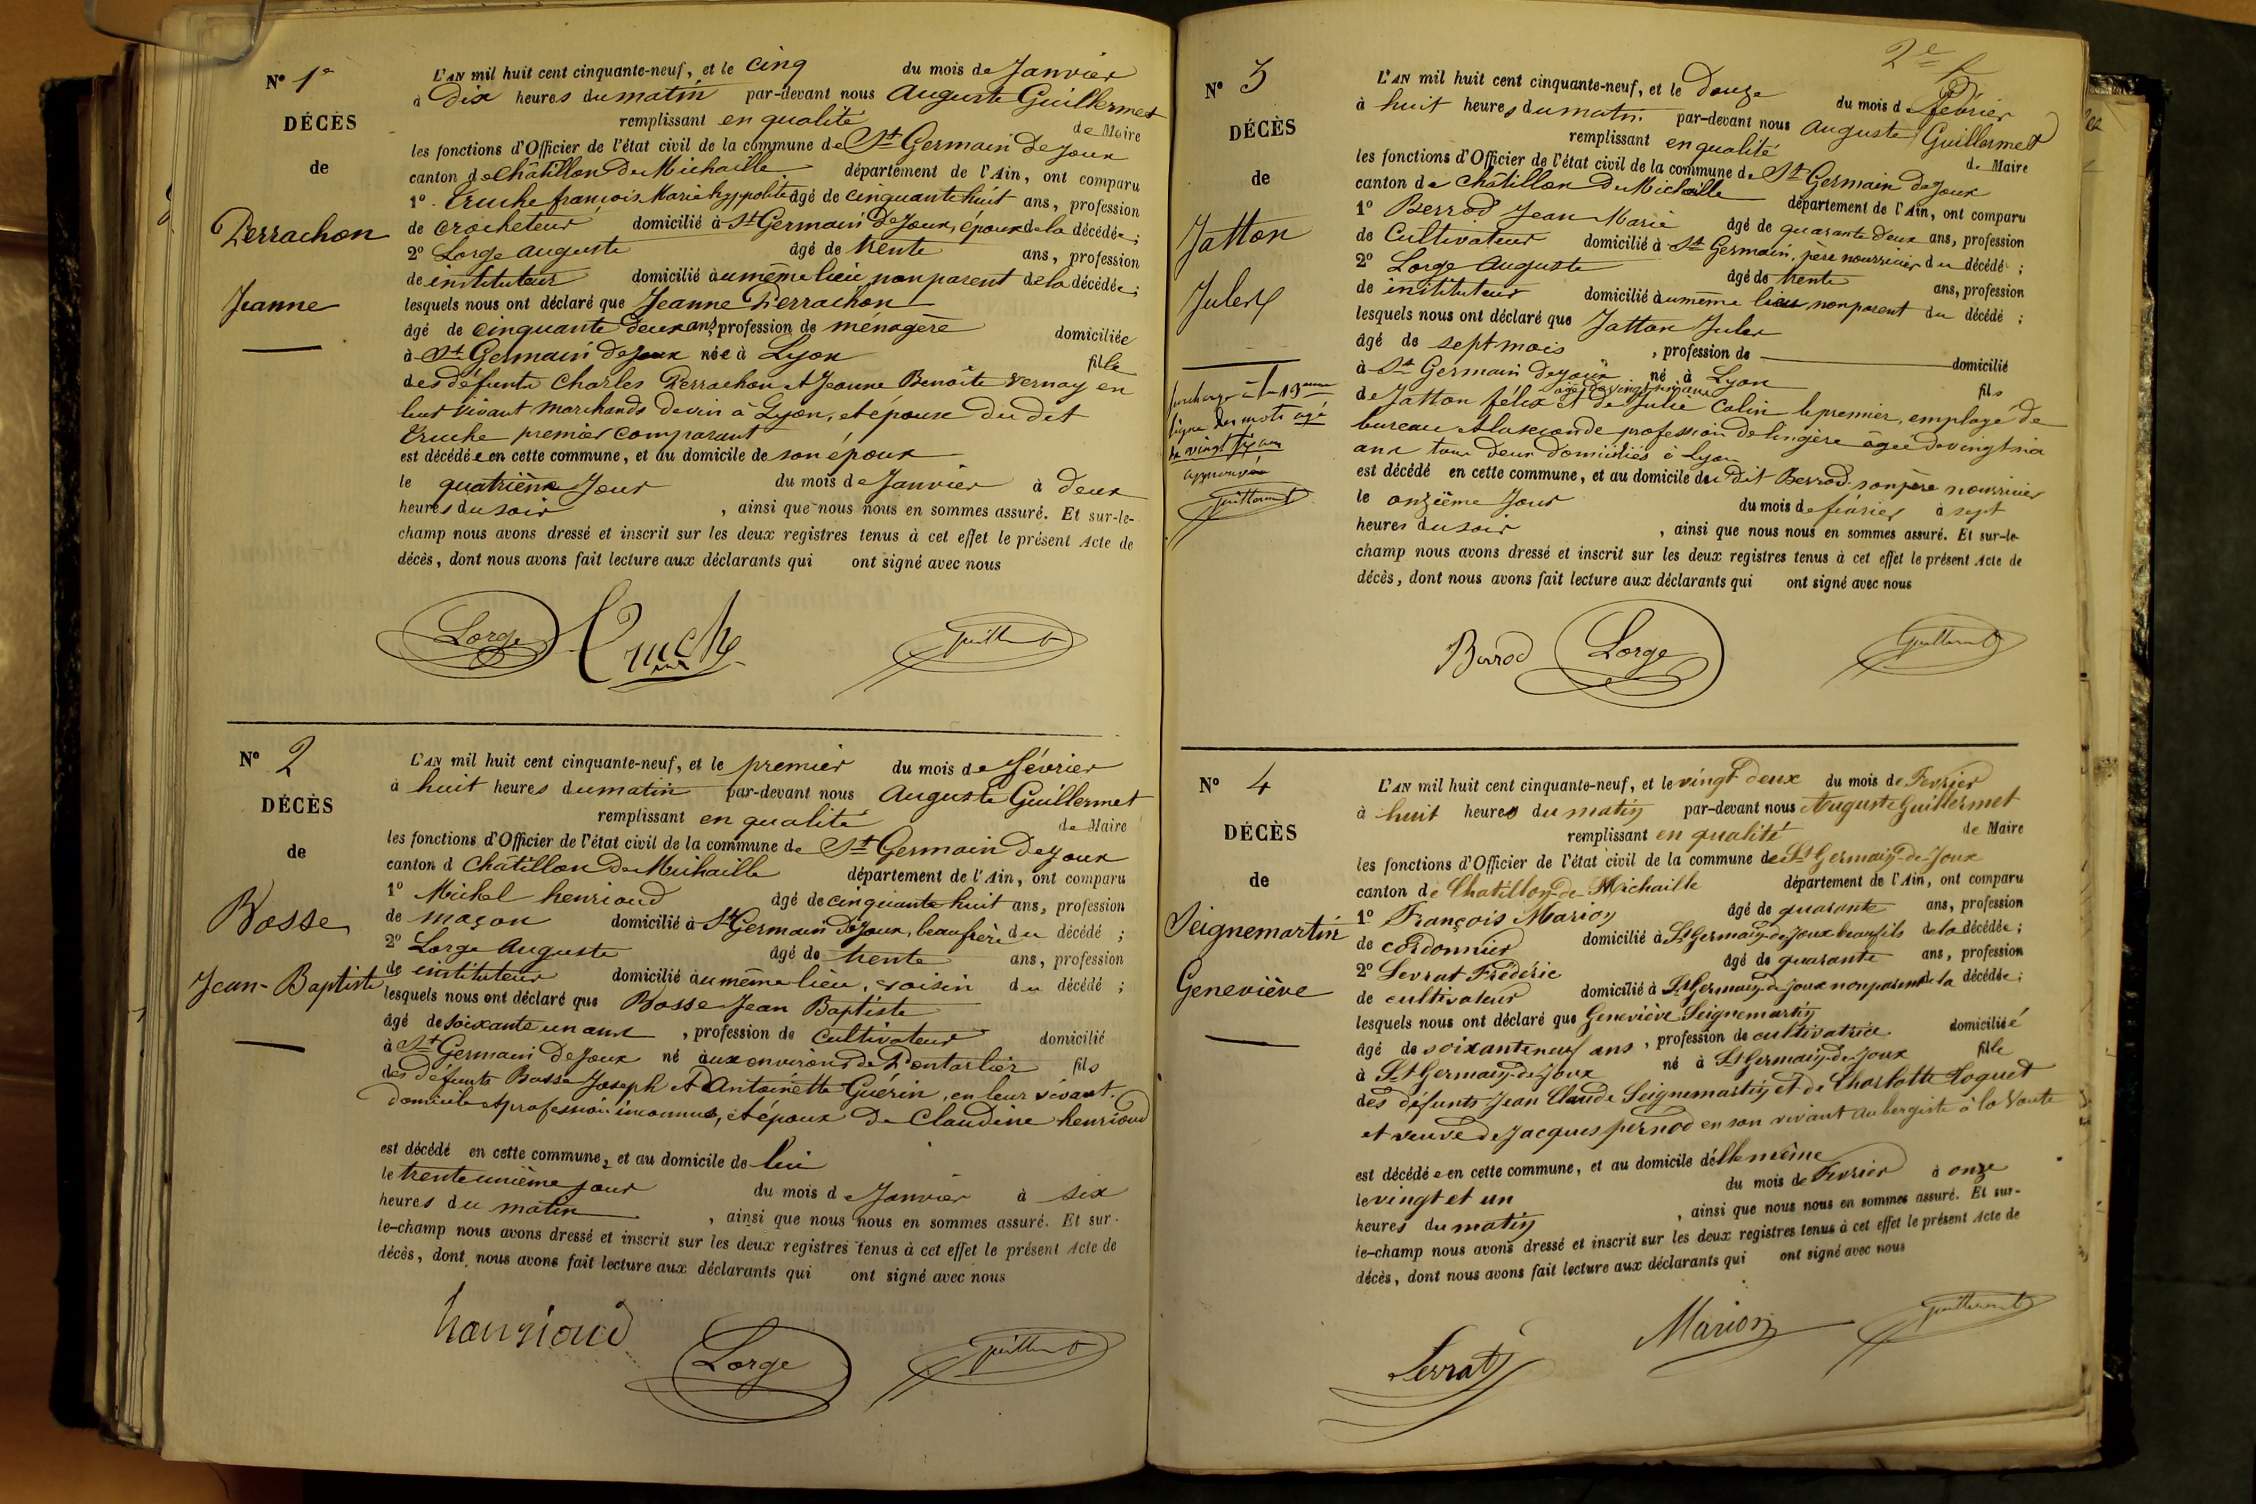 N° 1er
DÉCÈS
de
Perrachon
Jeanne
L'AN mil huit cent cinquante-neuf, et le cinq du mois de Janvier
à dix heures du matin par-devant nous Auguste Guillermet
remplissant en qualité de Maire
les fonctions d'Officier de l'état civil de la commune de St Germain de Joux
canton de Châtillon de Michaille département de l'Ain, ont comparu
1° Cruche françois Marie hyppolite âgé de cinquante huit ans, profession
de crocheteur domicilié à St Germain de Joux, époux de la décédée;
2° Lorge Auguste âgé de trente ans, profession
de instituteur domicilié au même lieu, non parent de la décédée;
lesquels nous ont déclaré que Jeanne Perrachon
âgé de cinquante deux ans, profession de ménagère domiciliée
à St Germain de Joux née à Lyon fille
des défunts Charles Perrachon et Jeanne Benoîte Vernay en
leur vivant marchands de vin à Lyon, et épouse du dit
Cruche premier comparant
est décédée en cette commune, et au domicile de son époux
le quatrième jour du mois de Janvier à deux
heures du soir, ainsi que nous nous en sommes assuré. Et sur-le-
champ nous avons dressé et inscrit sur les deux registres tenus à cet effet le présent Acte de
décès, dont nous avons fait lecture aux déclarants qui ont signé avec nous
Lorge Cruche Guillermet
N° 2
DÉCÈS
de
Bosse
Jean-Baptiste
L'AN mil huit cent cinquante-neuf, et le premier du mois de février
à huit heures du matin par-devant nous Auguste Guillermet
remplissant en qualité de Maire
les fonctions d'Officier de l'état civil de la commune de St Germain de Joux
canton d Châtillon de Michaille département de l'Ain, ont comparu
1° Michel henrioud âgé de cinquante huit ans, profession
de maçon domicilié à St Germain de Joux, beau frère du décédé;
2° Lorge Auguste âgé de trente ans, profession
de instituteur domicilié au même lieu, voisin du décédé;
lesquels nous ont déclaré que Bosse Jean Baptiste
âgé de soixante un ans, profession de cultivateur domicilié
à St Germain de Joux né aux environs de Pontarlier fils
des défunts Bosse Joseph et d'Antoinette Guérin, en leur vivant.
domicile et profession inconnus, et époux de Claudine henrioud
est décédé en cette commune, et au domicile de lui
le trente unième jour du mois de Janvier à six
heures du matin, ainsi que nous nous en sommes assuré. Et sur-
le-champ nous avons dressé et inscrit sur les deux registres tenus à cet effet le présent Acte de
décès, dont nous avons fait lecture aux déclarants qui ont signé avec nous
henrioud Lorge Guillermet
2e f
N° 3
DÉCÈS
de
Jatton
Jules
surcharge à la 13eme
ligne des mots âgé
de vingt six ans
approuvée
Guillermet
L'AN mil huit cent cinquante-neuf, et le douze du mois de février
à huit heures du matin par-devant nous Auguste Guillermet
remplissant en qualité de Maire
les fonctions d'Officier de l'état civil de la commune de St Germain de Joux
canton de Châtillon de Michaille département de l'Ain, ont comparu
1° Berrod Jean Marie âgé de quarante deux ans, profession
de Cultivateur domicilié à St Germain, père nourricier du décédé;
2° Lorge Auguste âgé de trente ans, profession
de instituteur domicilié au même lieu non parent du décédé;
lesquels nous ont déclaré que Jatton Jules
âgé de sept mois, profession de domicilié
à St Germain de Joux né à Lyon fils
âgé de vingt six ans
de Jatton félix et de Julie Colin le premier, employé de
bureau et la seconde profession de lingère âgée de vingt six
ans tous deux domiciliés à Lyon
est décédé en cette commune, et au domicile du dit Berrod son père nourricier
le onzième jour du mois de février à sept
heures du soir, ainsi que nous nous en sommes assuré. Et sur-le-
champ nous avons dressé et inscrit sur les deux registres tenus à cet effet le présent Acte de
décès, dont nous avons fait lecture aux déclarants qui ont signé avec nous
Berrod Lorge Guillermet
N° 4
DÉCÈS
de
Seignemartin
Geneviève
L'AN mil huit cent cinquante-neuf, et le vingt deux du mois de Fevrier
à huit heures du matin par-devant nous Auguste Guillermet
remplissant en qualité de Maire
les fonctions d'Officier de l'état civil de la commune de St Germain-de-Joux
canton de Chatillon-de-Michaille département de l'Ain, ont comparu
1° François Marion âgé de quarante ans, profession
de cordonnier domicilié à St Germain-de-Joux beau fils de la décédée;
2° Levrat Frédéric âgé de quarante ans, profession
de cultivateur domicilié à St Germain-de-Joux non parent de la décédée;
lesquels nous ont déclaré que Geneviève Seignemartin
âgé de soixante neuf ans, profession de cultivatrice domiciliée
à St Germain-de-Joux né à St Germain-de-Joux fille
des défunts Jean Claude Seignemartin et de Charlotte Hoguet
et veuve de Jacques pernod en son vivant aubergiste à la Voute
est décédée en cette commune, et au domicile d'elle même
le vingt et un du mois de Fevrier à onze
heures du matin, ainsi que nous nous en sommes assuré. Et sur-
le-champ nous avons dressé et inscrit sur les deux registres tenus à cet effet le présent Acte de
décès, dont nous avons fait lecture aux déclarants qui ont signé avec nous
Levrat Marion Guillermet